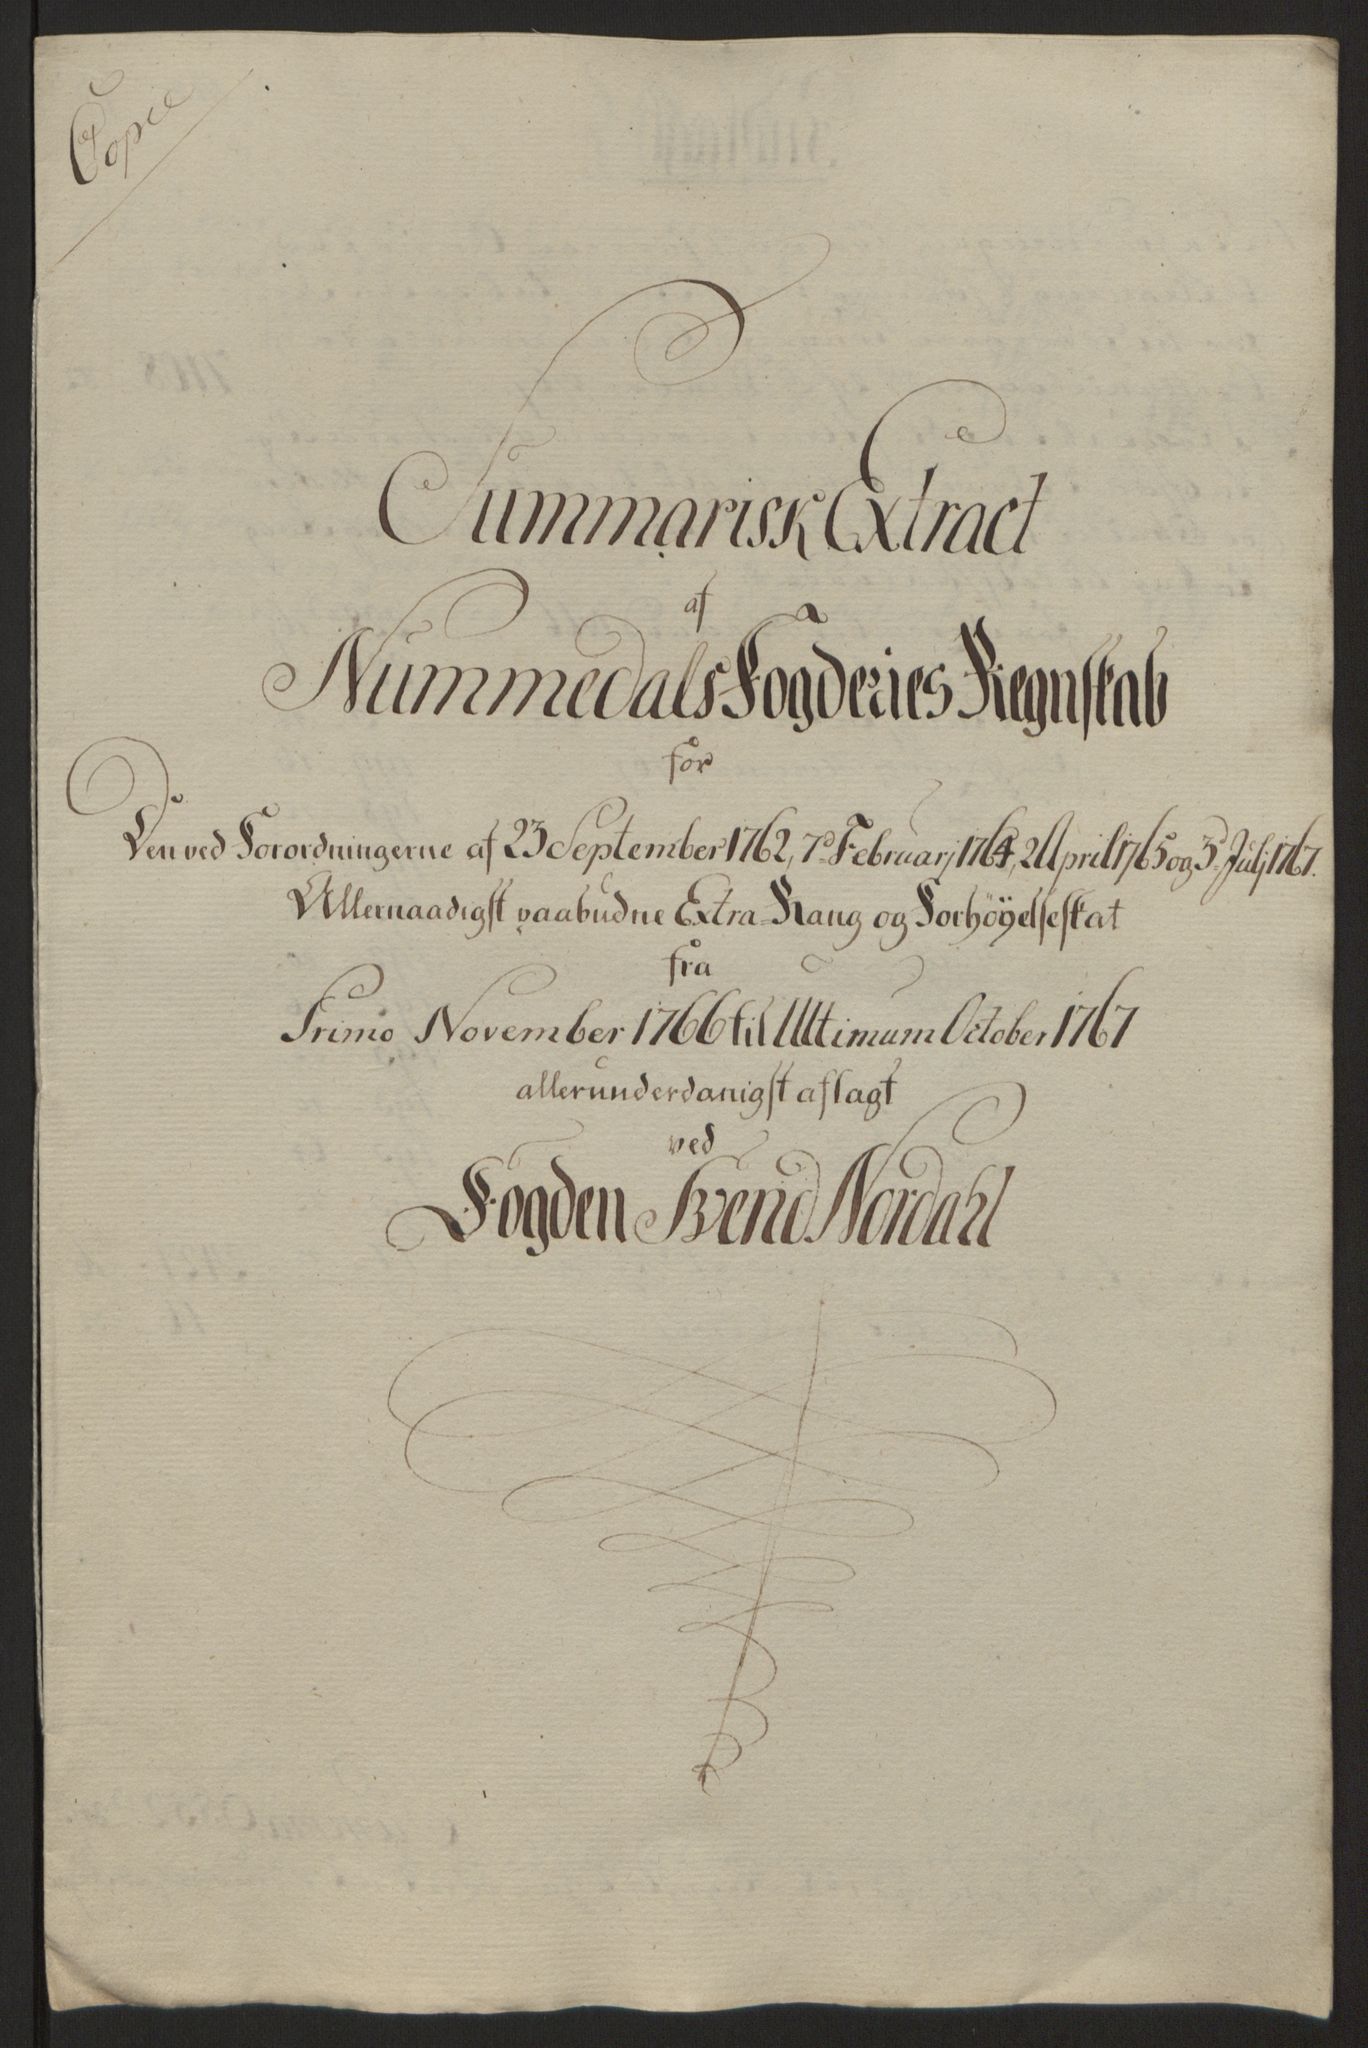 Copie
Summarisk Extract
af
Nummedals Fogderies Regnskab
for
Den ved Forordningerne af 23 September 1762, 7de Februarj 1764, 2 April 1765 og 3de Julj 1767.
Allernaadigst paabudne Extra-Rang og Forhöyelse skat
fra
Primo November 1766 til Ultimum October 1767
allerunderdanigst aflagt
ved
Fogden Svend Nordahl